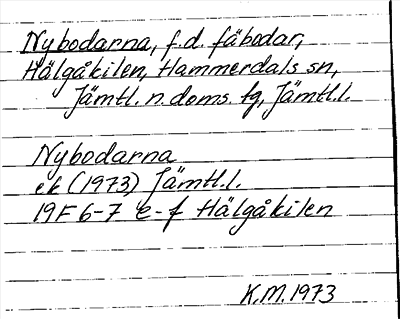 Nybodarna, f.d. fäbodar,
Hälgåkilen, Hammerdals sn,
Jämtl. n. doms. tg, Jämtl.l.
Nybodarna
ek (1973) Jämtl.l.
19F 6-7 e-f Hälgåkilen
K.M. 1973